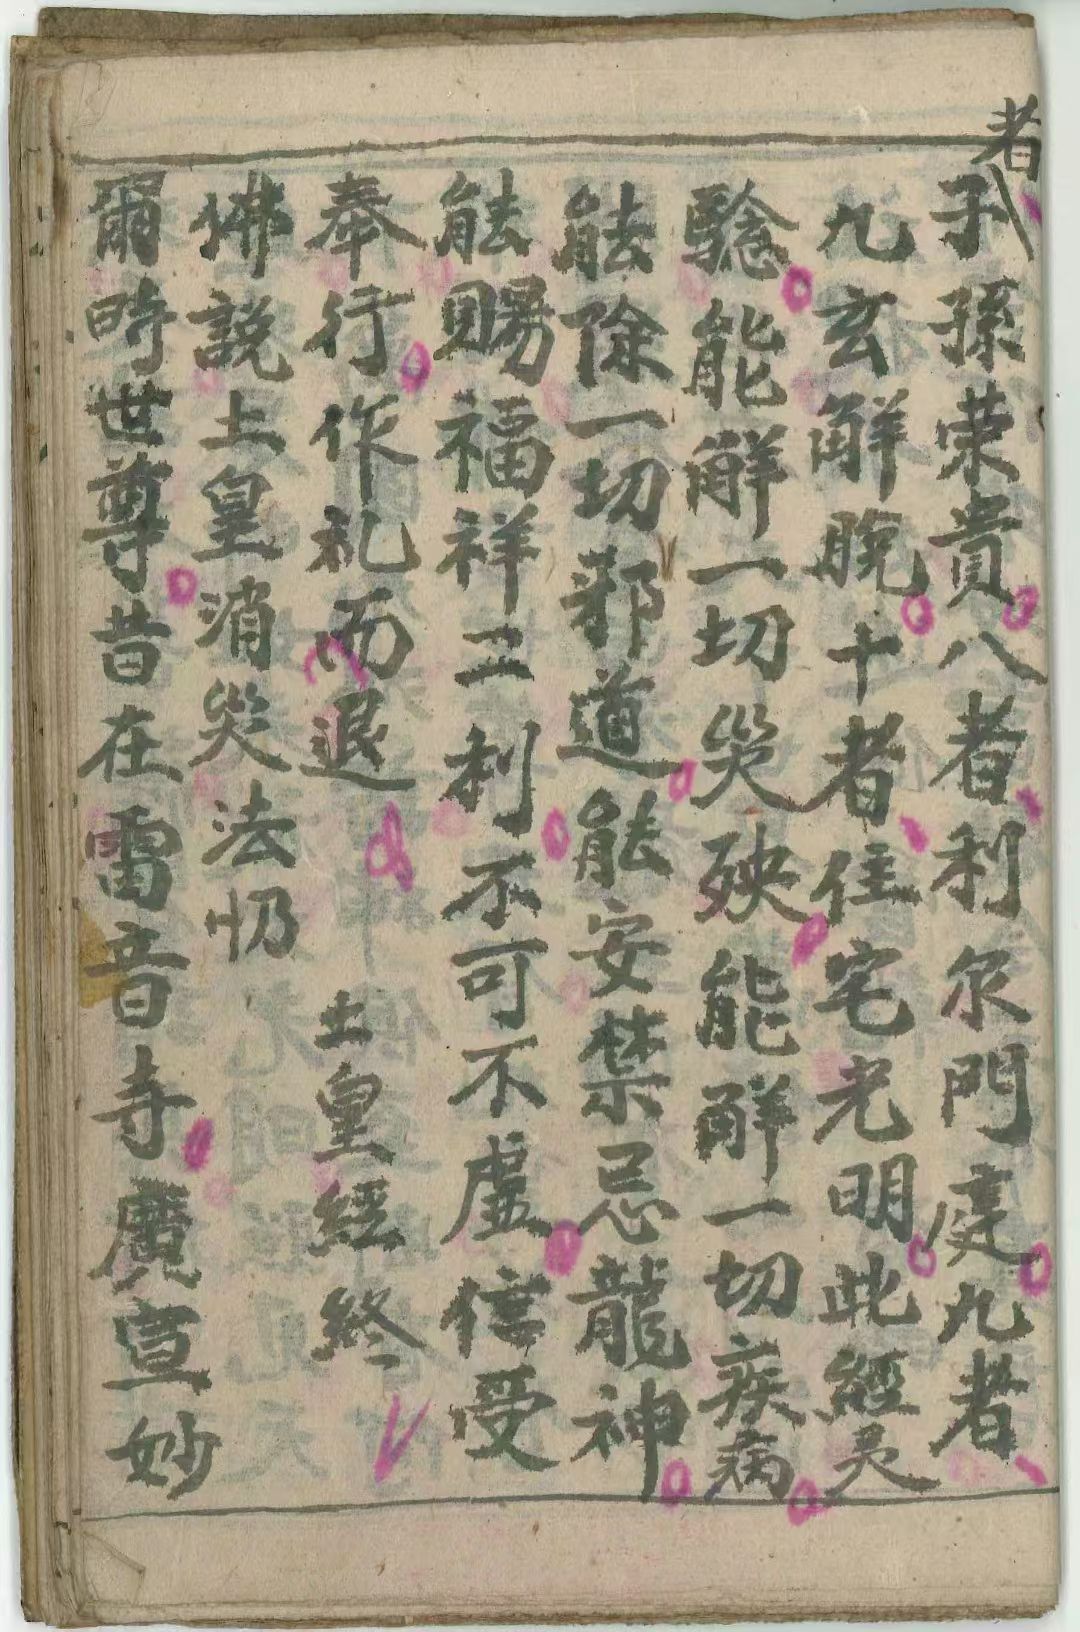 者
子孫荣貴八者利尔門庭九者
九玄解脫十者住宅光明此經灵
驗能解一切災殃能解一切疾病
能除一切邪道能安禁忌龍神
能賜福祥二利不可不虛信受
奉行作礼而退 土皇經終
佛説土皇消災法忏
爾時世尊昔在雷音寺廣宣妙